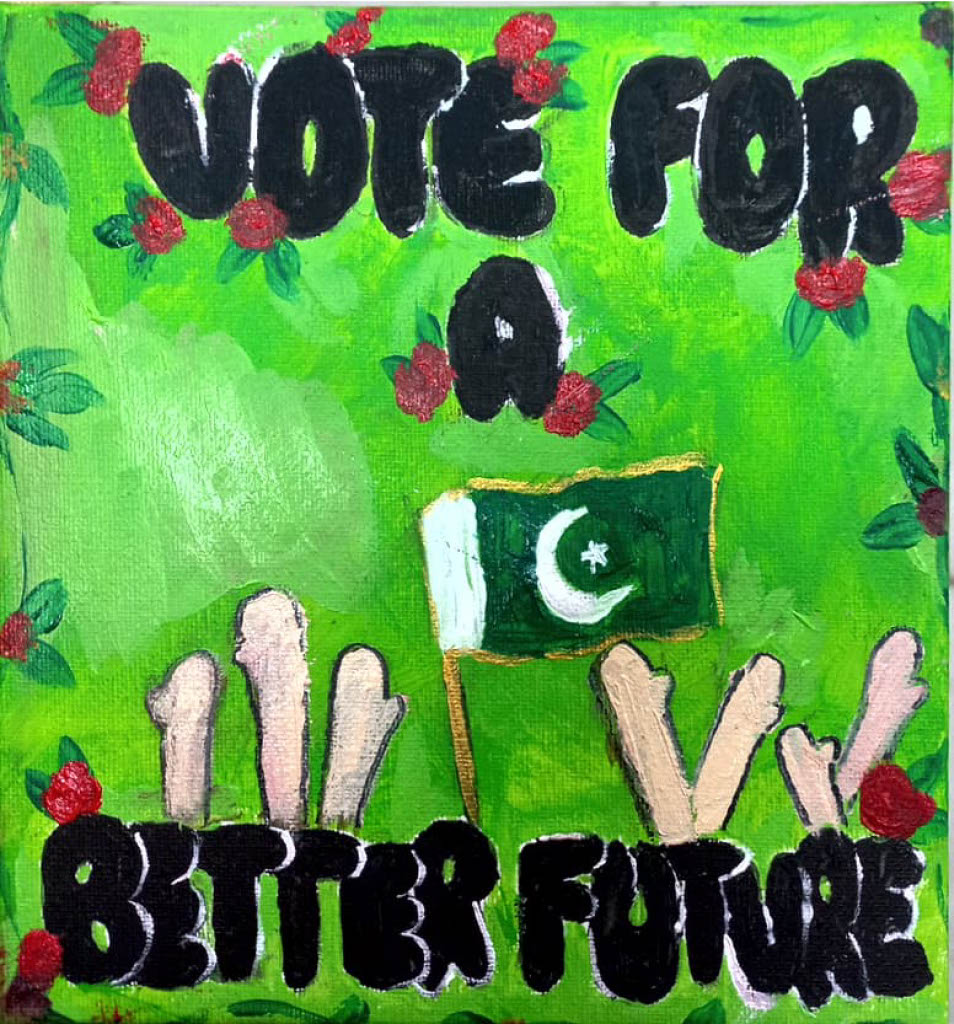 VOTE FOR
A
BETTER FUTURE